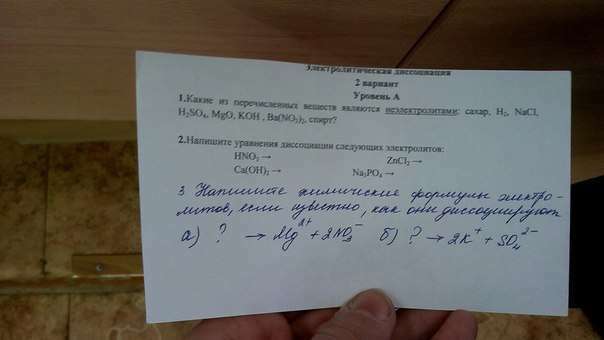 Электролитическая диссоциация
2 вариант
Уровень А
1.Какие из перечисленных веществ являются неэлектролитами: сахар, H₂, NaCl,
H₂SO₄, MgO, KOH , Ba(NO₃)₂, спирт?
2.Напишите уравнения диссоциации следующих электролитов:
HNO₃ → ZnCl₂ →
Ca(OH)₂ → Na₃PO₄ →
3 Напишите химические формулы электро-
литов, если известно, как они диссоциируют
а) ? → Mg²⁺ + 2NO₃⁻ б) ? → 2K⁺ + SO₄²⁻